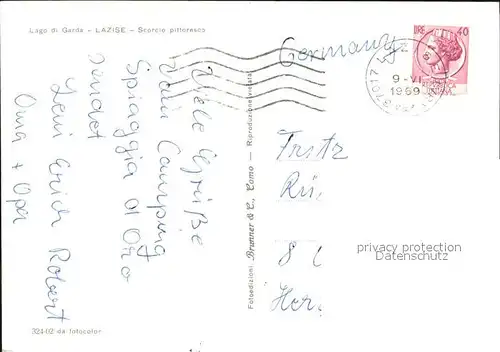 Lago di Garda - LAZISE - Scorcio pittoresco
Viele Grüße
Camping
Spiaggia d'Oro
sendet
Erich Robert
Oma + Opa
324-02 da fotocolor
Fotoedizioni Brunner & C., Como - Riproduzione vietata
Germany
LIRE 40
9-VI
1969
37017
Fritz
Rü
8
Her
privacy protection
Datenschutz